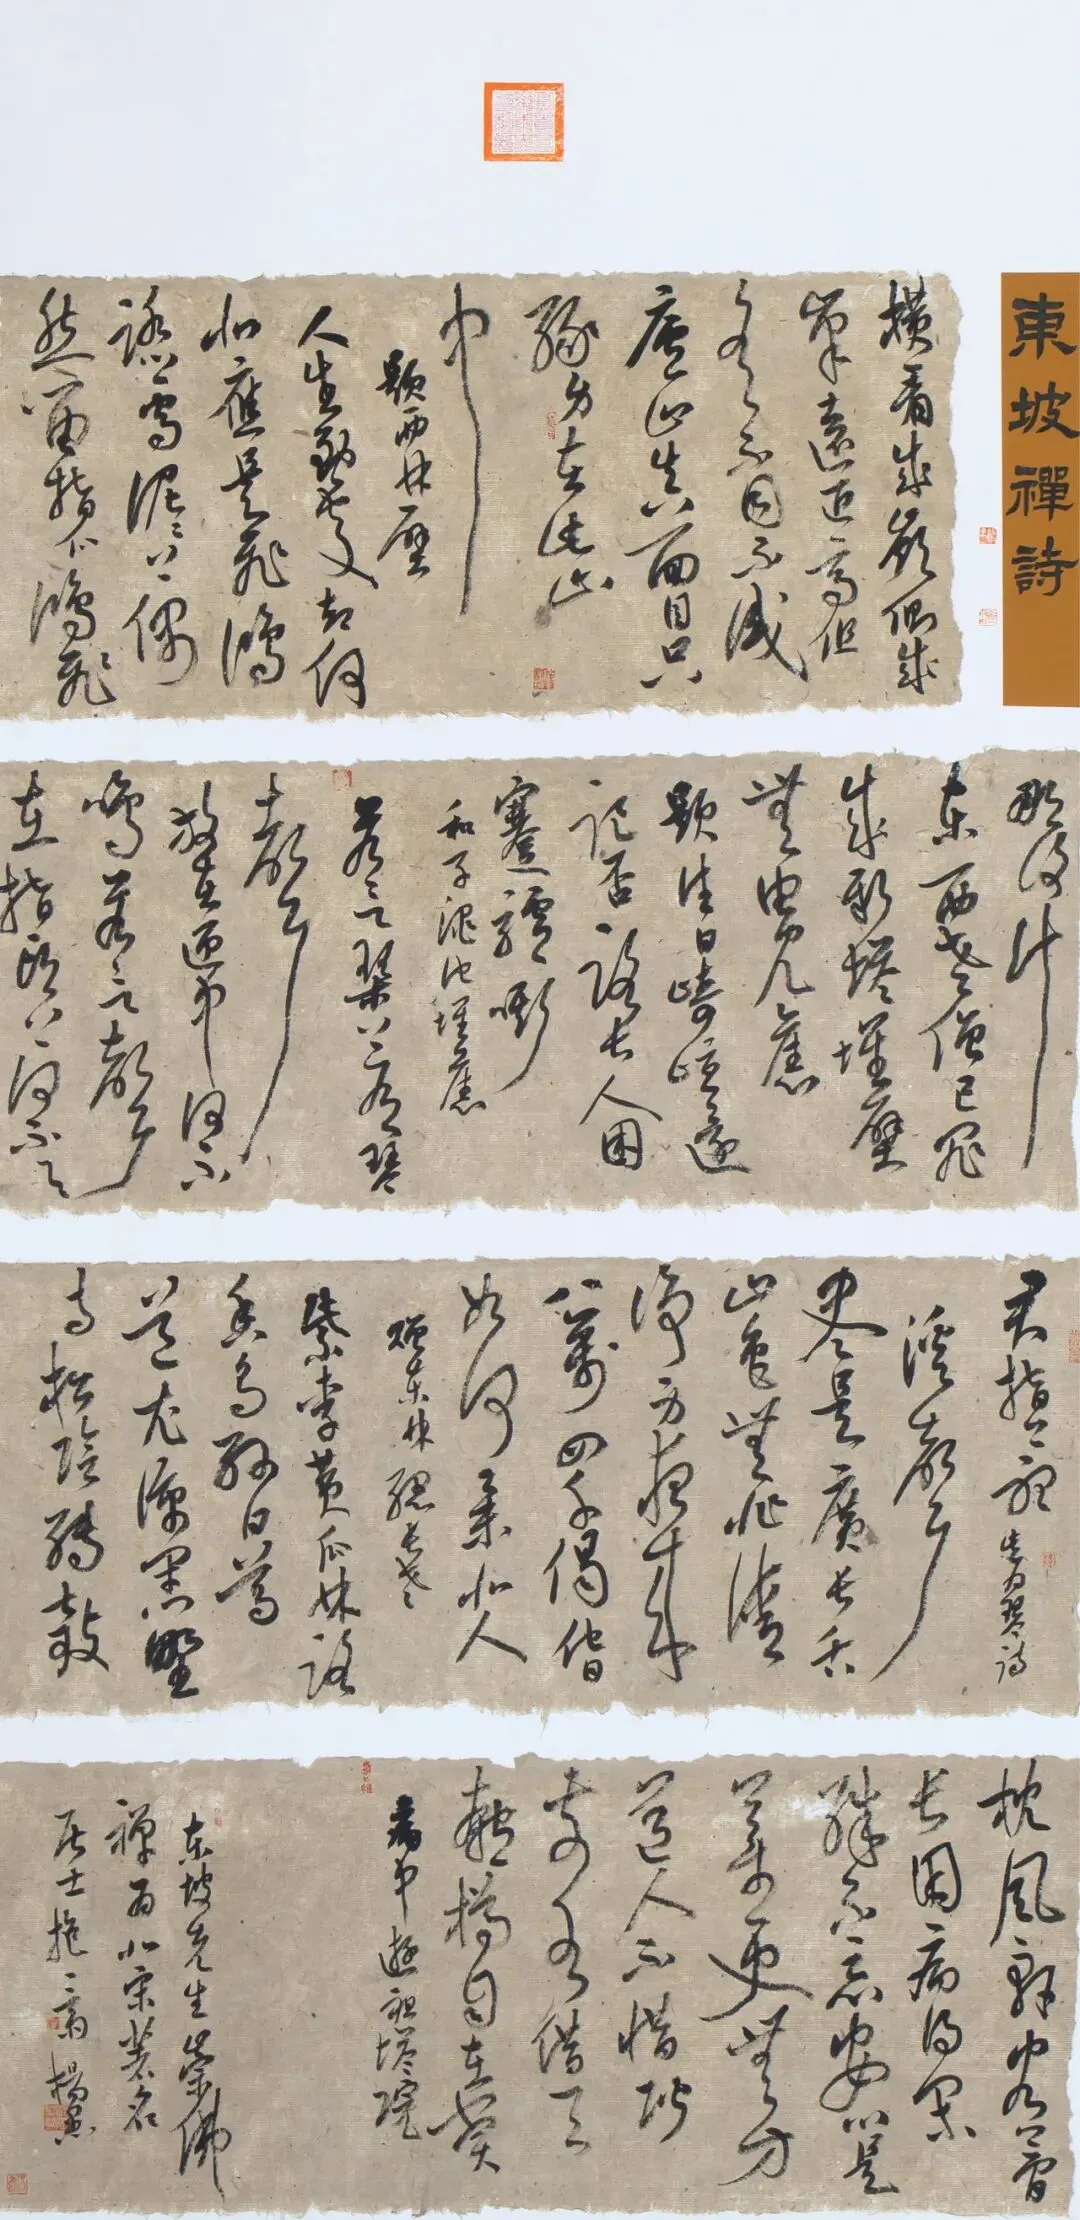 東坡禪詩
横看成嶺側成
峰遠近高低
各不同不識
廬山真面目只
緣身在此山
中
題西林壁
人生到處知何
似應是飛鴻
踏雪泥泥上偶
然留指爪鴻飛
那復計
東西老僧已死
成新塔壞壁
無由見舊
題往日崎嶇還
記否路長人困
蹇驢嘶
和子澠池懷舊
若言琴上有琴
聲
放在匣中何不
鳴若言聲
在指頭上何不于
君指上聽 琴詩
溪聲
便是廣長舌
山色無非清
淨身夜來
八萬四千偈他日
如何舉似人
贈東林總長老
紫李黃瓜村路
香烏紗白葛
道衣涼閉野
寺松陰轉欹
枕風軒客夢
長因病得閑
殊不惡安心是
藥更無方
道人不惜階
前水借與
匏樽自在嘗
病中遊祖塔院
東坡先生崇佛
禪為北宋著名
居士